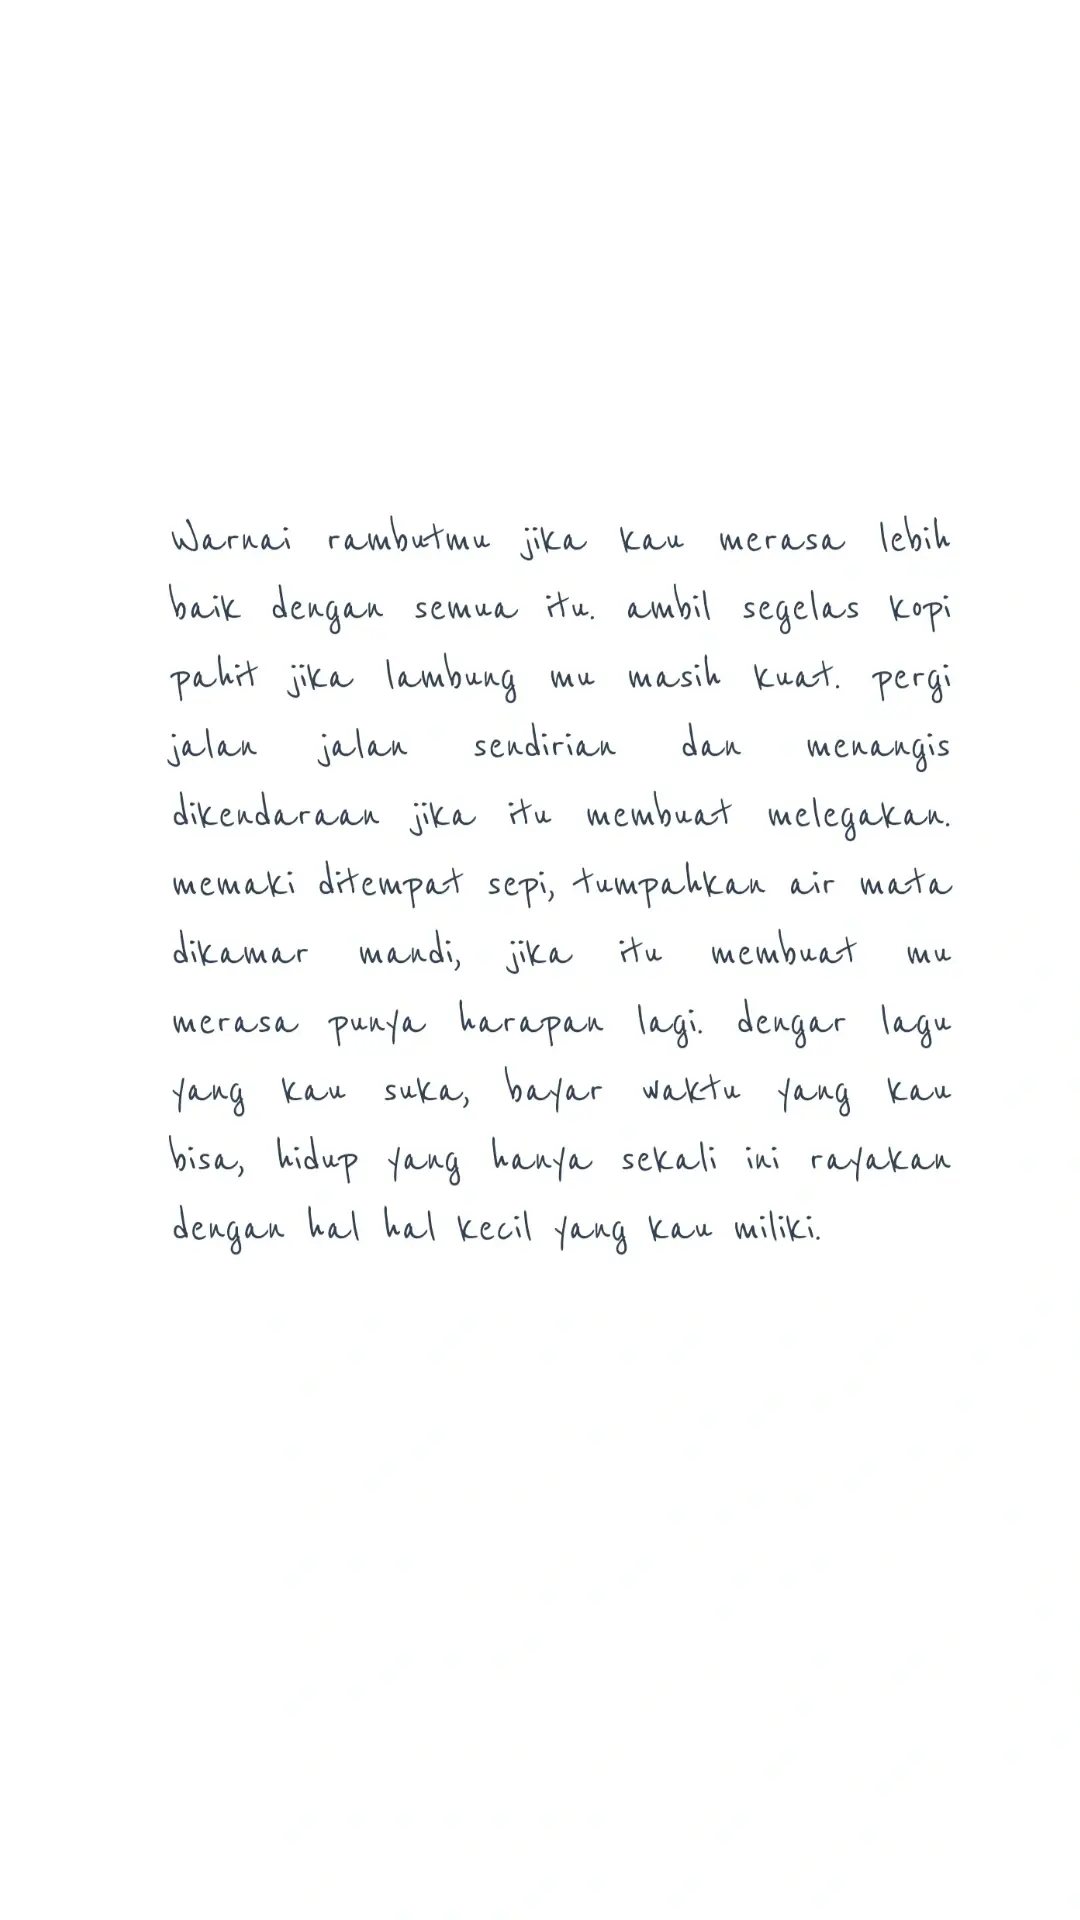 Warnai rambutmu jika kau merasa lebih
baik dengan semua itu. ambil segelas kopi
pahit jika lambung mu masih kuat. pergi
jalan jalan sendirian dan menangis
dikendaraan jika itu membuat melegakan.
memaki ditempat sepi, tumpahkan air mata
dikamar mandi, jika itu membuat mu
merasa punya harapan lagi. dengar lagu
yang kau suka, bayar waktu yang kau
bisa, hidup yang hanya sekali ini rayakan
dengan hal hal kecil yang kau miliki.